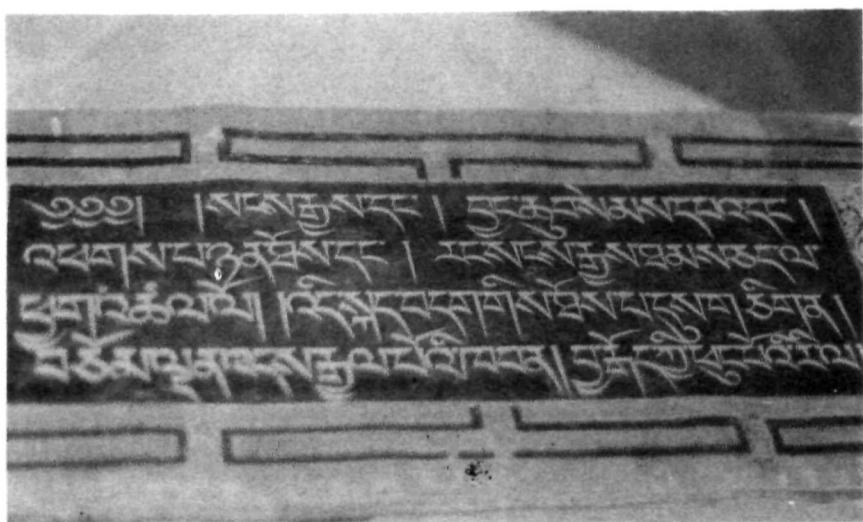 ༄༅༅། །སངས་རྒྱས་དང་། བྱང་ཆུབ་སེམས་དཔའ་དང་།
འཕགས་པ་ཉན་ཐོས་དང་། རང་སངས་རྒྱས་ཐམས་ཅད་ལ
ཕྱག་འཚལ་ལོ། །འདི་སྐད་བདག་གིས་ཐོས་པ་དུས་གཅིག་ན།
བཅོམ་ལྡན་འདས་རྒྱལ་པོའི་ཁབ་ན། བྱ་རྒོད་ཀྱི་ཕུང་པོའི་རི་ལ